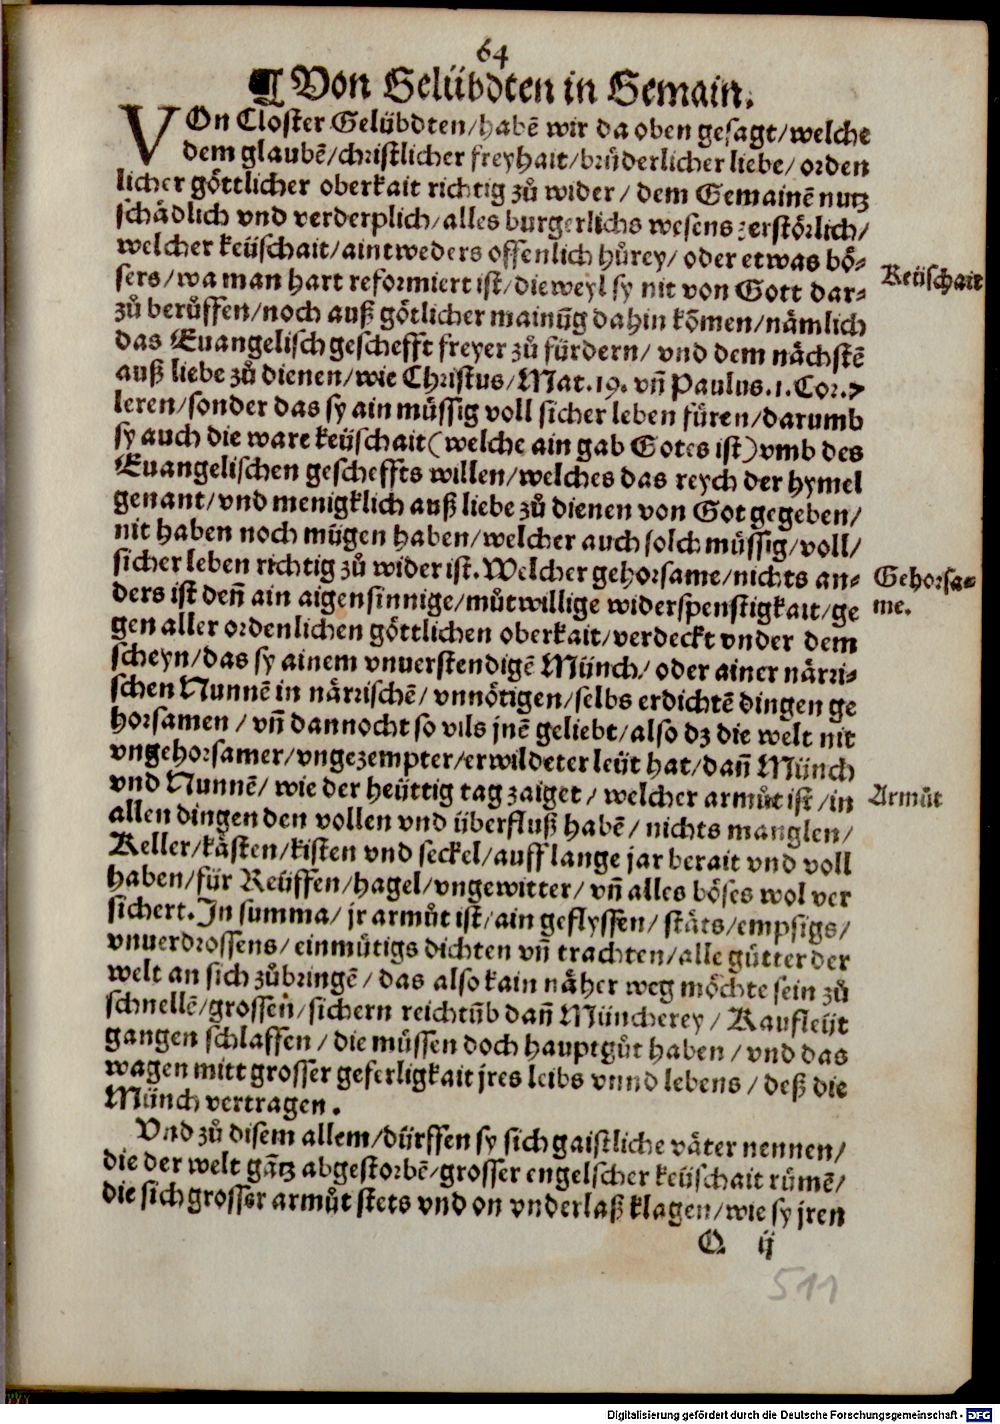 64
¶ Von Gelübdten in Gemain.
VOn Closter Gelübdten/habē wir da oben gesagt/welche
dem glaubē/christlicher freyhait/brůderlicher liebe/orden
licher göttlicher oberkait richtig zů wider/dem Gemainē nutz
schädlich vnd verderplich/alles burgerlichs wesens zerstörlich/
welcher keüschait/aintweders offenlich hůrey/oder etwas bö-
sers/wa man hart reformiert ist/dieweyl sy nit von Gott dar-
Keüschait
zů berůffen/noch auß götlicher mainūg dahin kōmen/nämlich
das Euangelisch geschefft freyer zů fürdern/vnd dem nächstē
auß liebe zů dienen/wie Christus/Mat.19. vn̄ Paulus.1.Cor.7
leren/sonder das sy ain müssig voll sicher leben füren/darumb
sy auch die ware keüschait(welche ain gab Gotes ist)vmb des
Euangelischen gescheffts willen/welches das reych der hymel
genant/vnd menigklich auß liebe zů dienen von Got gegeben/
nit haben noch mügen haben/welcher auch solch müssig/voll/
sicher leben richtig zů wider ist. Welcher gehorsame/nichts an-
Gehorsa-
ders ist den̄ ain aigensinnige/můtwillige widerspenstigkait/ge
me.
gen aller ordenlichen göttlichen oberkait/verdeckt vnder dem
scheyn/das sy ainem vnuerstendigē Münch/oder ainer närri-
schen Nunnē in närrischē/vnnötigen/selbs erdichtē dingen ge
horsamen/vn̄ dannocht so vils jnē geliebt/also dz die welt nit
vngehorsamer/vngezempter/erwildeter leüt hat/dan̄ Münch
vnd Nunnē/wie der heüttig tag zaiget/welcher armůt ist/in
Armůt
allen dingen den vollen vnd überfluß habē/nichts manglen/
Keller/kästen/kisten vnd seckel/auff lange jar berait vnd voll
haben/für Reüffen/hagel/vngewitter/vn̄ alles böses wol ver
sichert. In summa/jr armůt ist/ain geflyssen/stäts/empsigs/
vnuerdrossens/einmütigs dichten vn̄ trachten/alle gütter der
welt an sich zůbringē/das also kain näher weg möchte sein zů
schnellē/grossen/sichern reichtūb dan̄ Müncherey/Kaufleüt
gangen schlaffen/die müssen doch hauptgůt haben/vnd das
wagen mitt grosser geferligkait jres leibs vnnd lebens/deß die
Münch vertragen.
Vnd zů disem allem/dürffen sy sich gaistliche väter nennen/
die der welt gātz abgestorbē/grosser engelscher keüschait rümē/
die sich grosser armůt stets vnd on vnderlaß klagen/wie sy jren
Q ij
511
Digitalisierung gefördert durch die Deutsche Forschungsgemeinschaft - DFG